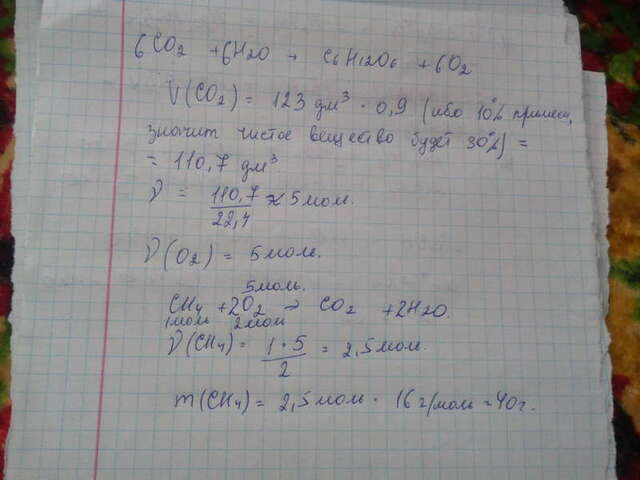 6CO2 + 6H2O → C6H12O6 + 6O2
V(CO2) = 123 дм³ · 0,9 (ибо 10% примеси,
значит чистое вещество будет 90%) =
= 110,7 дм³
ν = 110,7 / 22,4 ≈ 5 мол.
ν(O2) = 5 моль.
5 моль.
CH4 + 2O2 → CO2 + 2H2O.
1 моль 2 мол
ν(CH4) = 1 · 5 / 2 = 2,5 мол.
m(CH4) = 2,5 моль · 16 г/моль = 40 г.